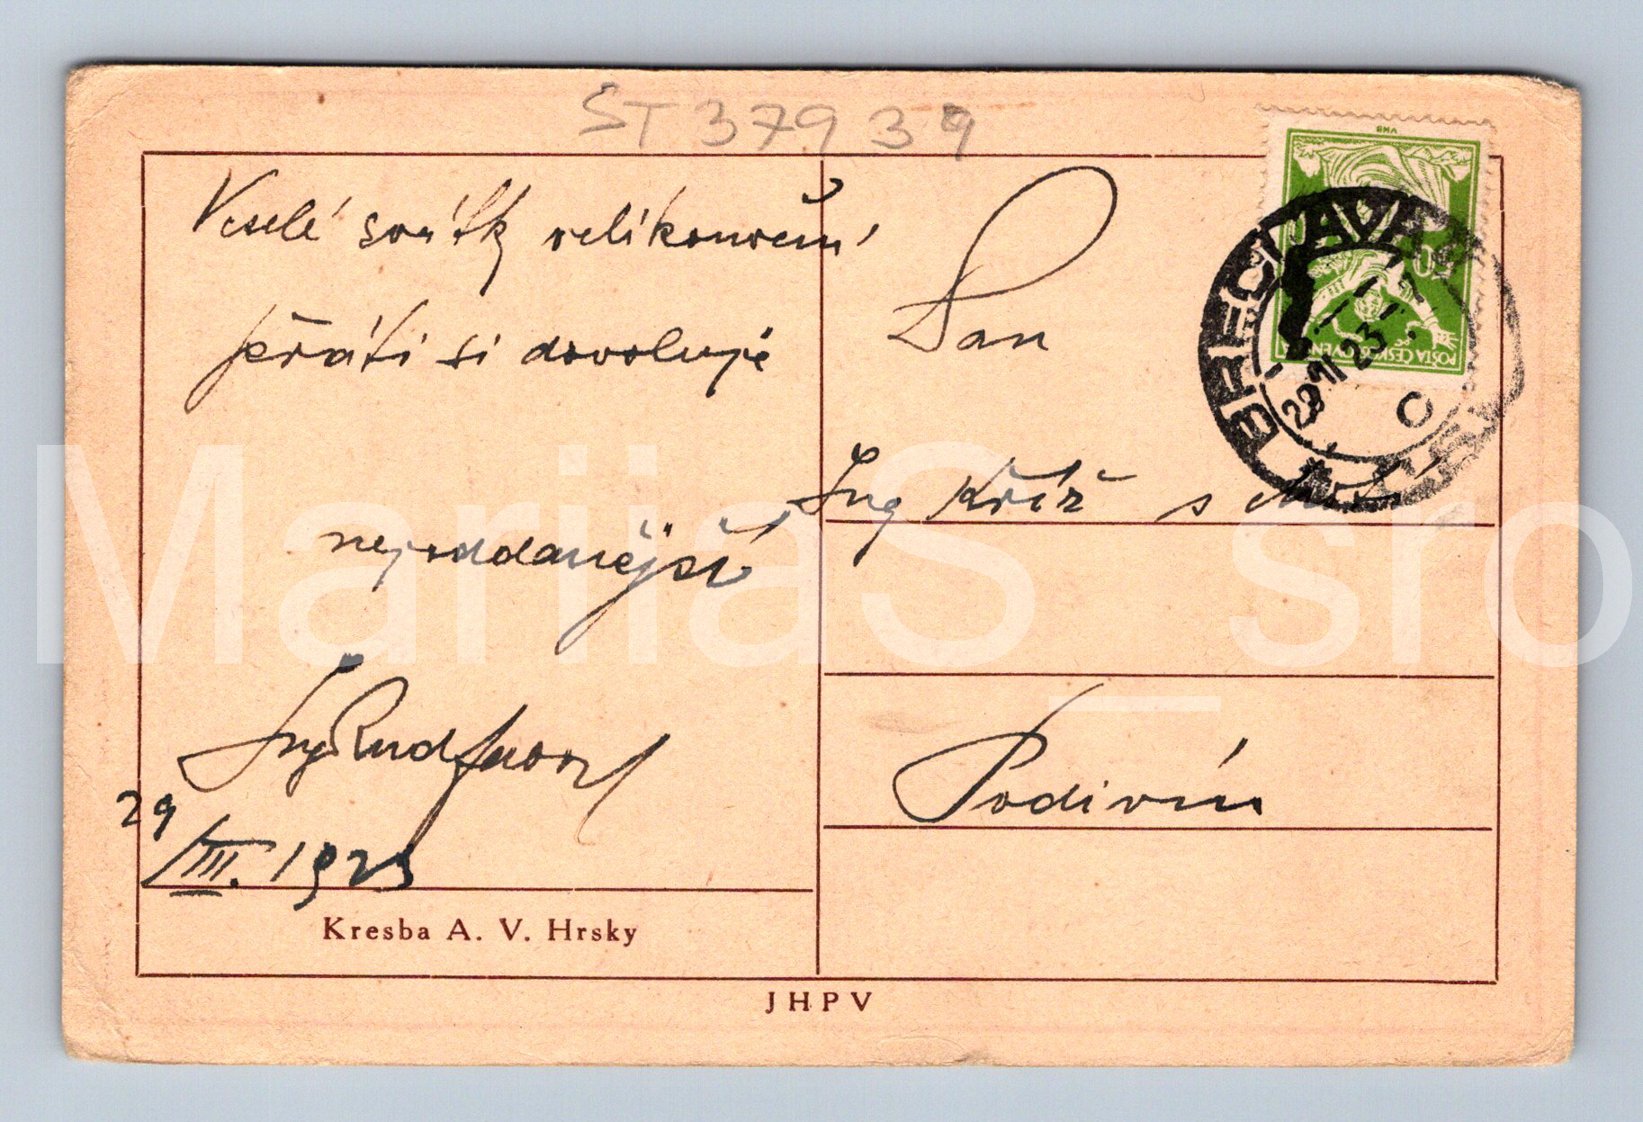 ST 379 39
Veselé svátky velikonoční
přáti si dovoluje
nejoddanější
Ing Rud
29/III. 1923
Kresba A. V. Hrsky
JHPV
Pan
Ing Kříž s chotí
Podivín
POŠTA ČESKOSLOVENSKÁ
BŘECLAV
29 III 23
MariiaS_sro